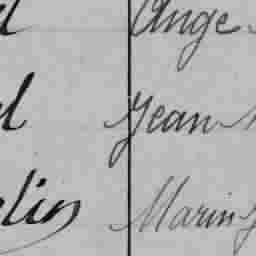 Ange
Jean
lin Marin